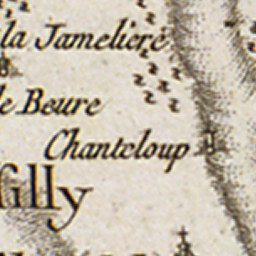 la Jameliere
le Beure
Chanteloup
silly